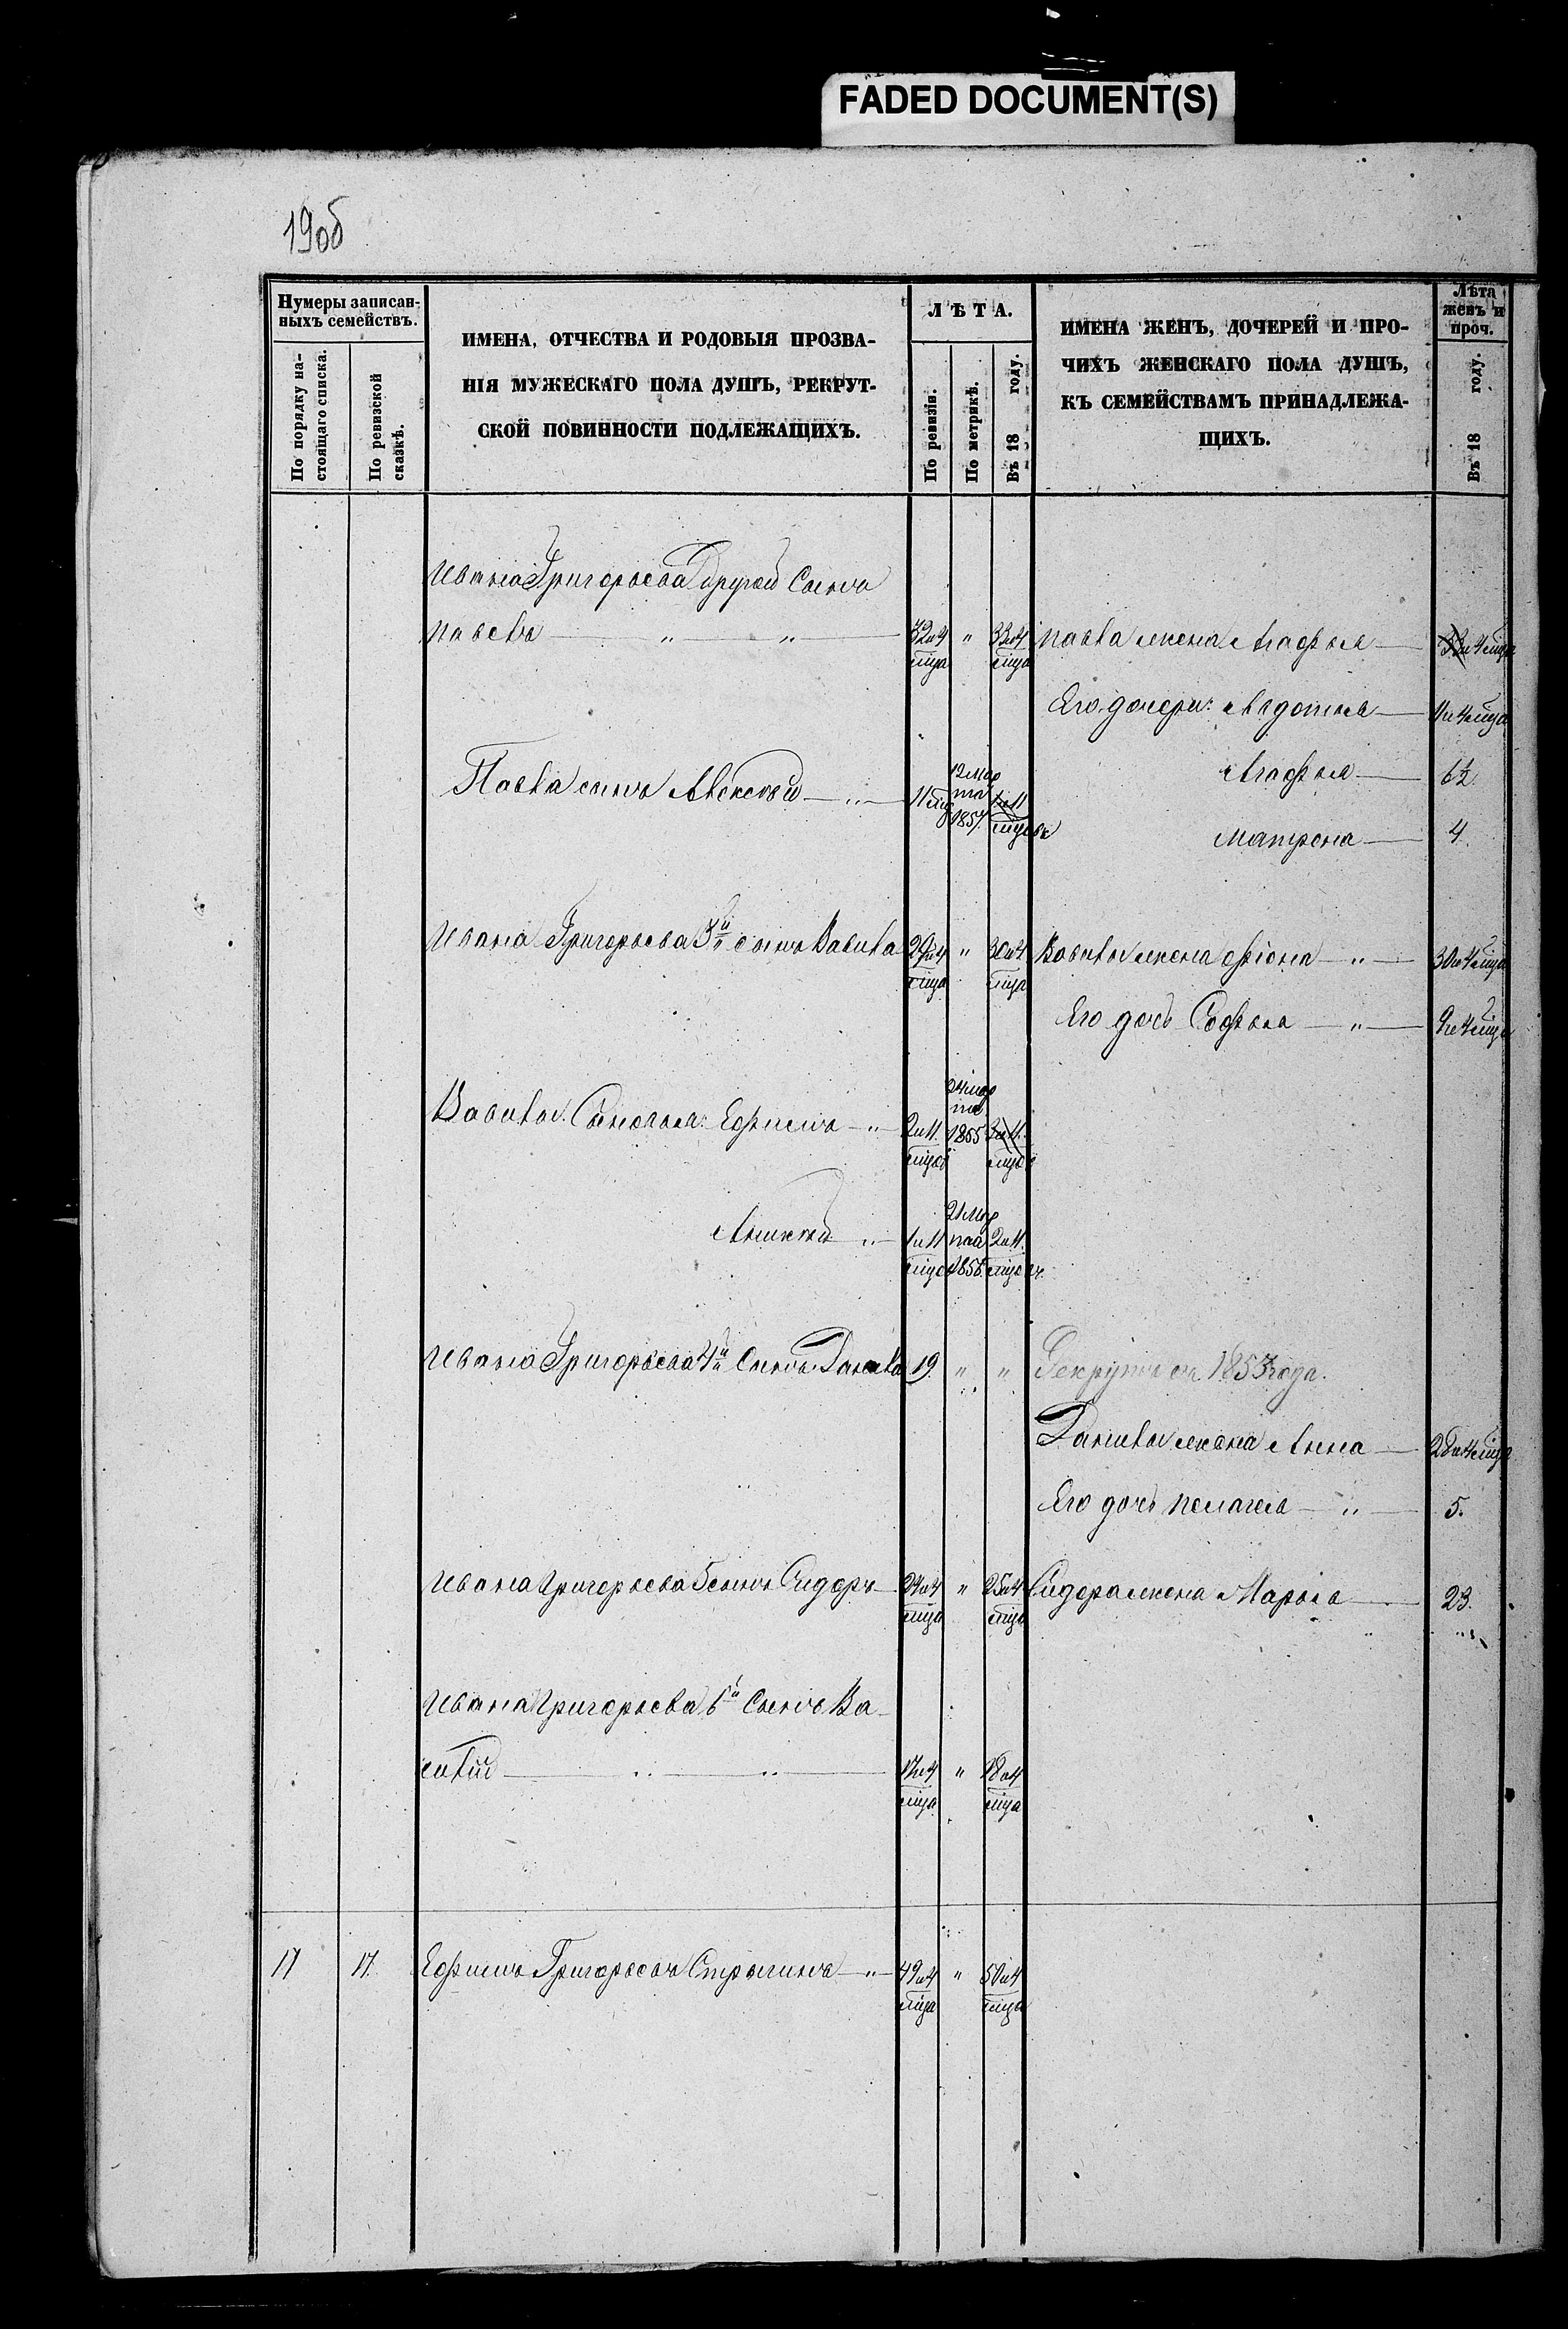 FADED DOCUMENT(S)
190б
Нумеры записан-
ныхъ семействъ.
По порядку на-
стоящаго списка.
По ревизской
сказкѣ.
ИМЕНА, ОТЧЕСТВА И РОДОВЫЯ ПРОЗВА-
НІЯ МУЖЕСКАГО ПОЛА ДУШЪ, РЕКРУТ-
СКОЙ ПОВИННОСТИ ПОДЛЕЖАЩИХЪ.
ЛѢТА.
По ревизіи.
По метрикѣ.
Въ 18 году.
ИМЕНА ЖЕНЪ, ДОЧЕРЕЙ И ПРО-
ЧИХЪ ЖЕНСКАГО ПОЛА ДУШЪ,
КЪ СЕМЕЙСТВАМЪ ПРИНАДЛЕЖА-
ЩИХЪ.
Лѣта
женъ и
проч.
Въ 18 году.
Ивана Григорьева Другой Сынъ
Павелъ — " — " — 32 и 4 мца " 33 и 4 мца Павла жена Агафья — 33 и 4 мца
Его дочери: Авдотья — 11 и 4 мца
Агафья — 6½
Павла сынъ Алексѣй — " — 11 мц 12 Мар
та
1857 1 и 11 мцовъ
Матрена — 4.
Ивана Григорьева 3й сынъ Вавила 29 и 4 мца " 30 и 4 мца Вавилы жена Фіона — " — 30 и 4 мца
Его дочь Софья — " — 9 и 4 мца
Вавилы Сыновья: Ефимъ — " 2 и 11. мцов 24 мар
та
1855 3 и 11. мцов
Алексѣй " 1 и 11 мцов 21 Мар
та
1856. 2 и 11. мцовъ
Ивана Григорьева 4й Сынъ Данила 19. " " Рекрутъ съ 1853 года.
Данилы жена Анна — 28 и 4 мца
Его дочь Пелагея — " — 5.
Ивана Григорьева 5 сынъ Сидоръ — 24 и 4 мца " 25 и 4 мца Сидора жена Марья — 23.
Ивана Григорьева 6й Сынъ Ва-
силій — " — " — 17 и 4 мца " 18 и 4 мца
17 17. Ефимъ Григорьевъ Стрыгинъ — " 49 и 4 мца " 50 и 4 мца